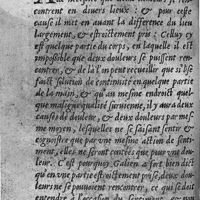 contrent en diuers lieux : & pour ceste
cause il met en auant la difference du lieu
largement, & estrictement pris : Celluy cy
est quelque partie du corps, en laquelle il est
impossible que deux douleurs se puissent ren-
contrer, & de là l'on peut recueillir que si l'es-
faict solution de continuité en quelque partie
de la main, & qu'au mesme endroit quel-
que maligne qualité suruienne, il y aura deux
causes de douleur, & deux douleurs par mes-
me moyen, lesquelles ne se faisant sentir &
cognoistre que par vne mesme action de senti-
ment, elles ne seront contées que pour vne dou-
leur. C'est pourquoy Galien a fort bien dict
qu'en vne partie estrictement prise, deux dou-
leurs ne se pouuoient rencontrer, ce qui se doit
entendre à l'occasion du sentiment, & non